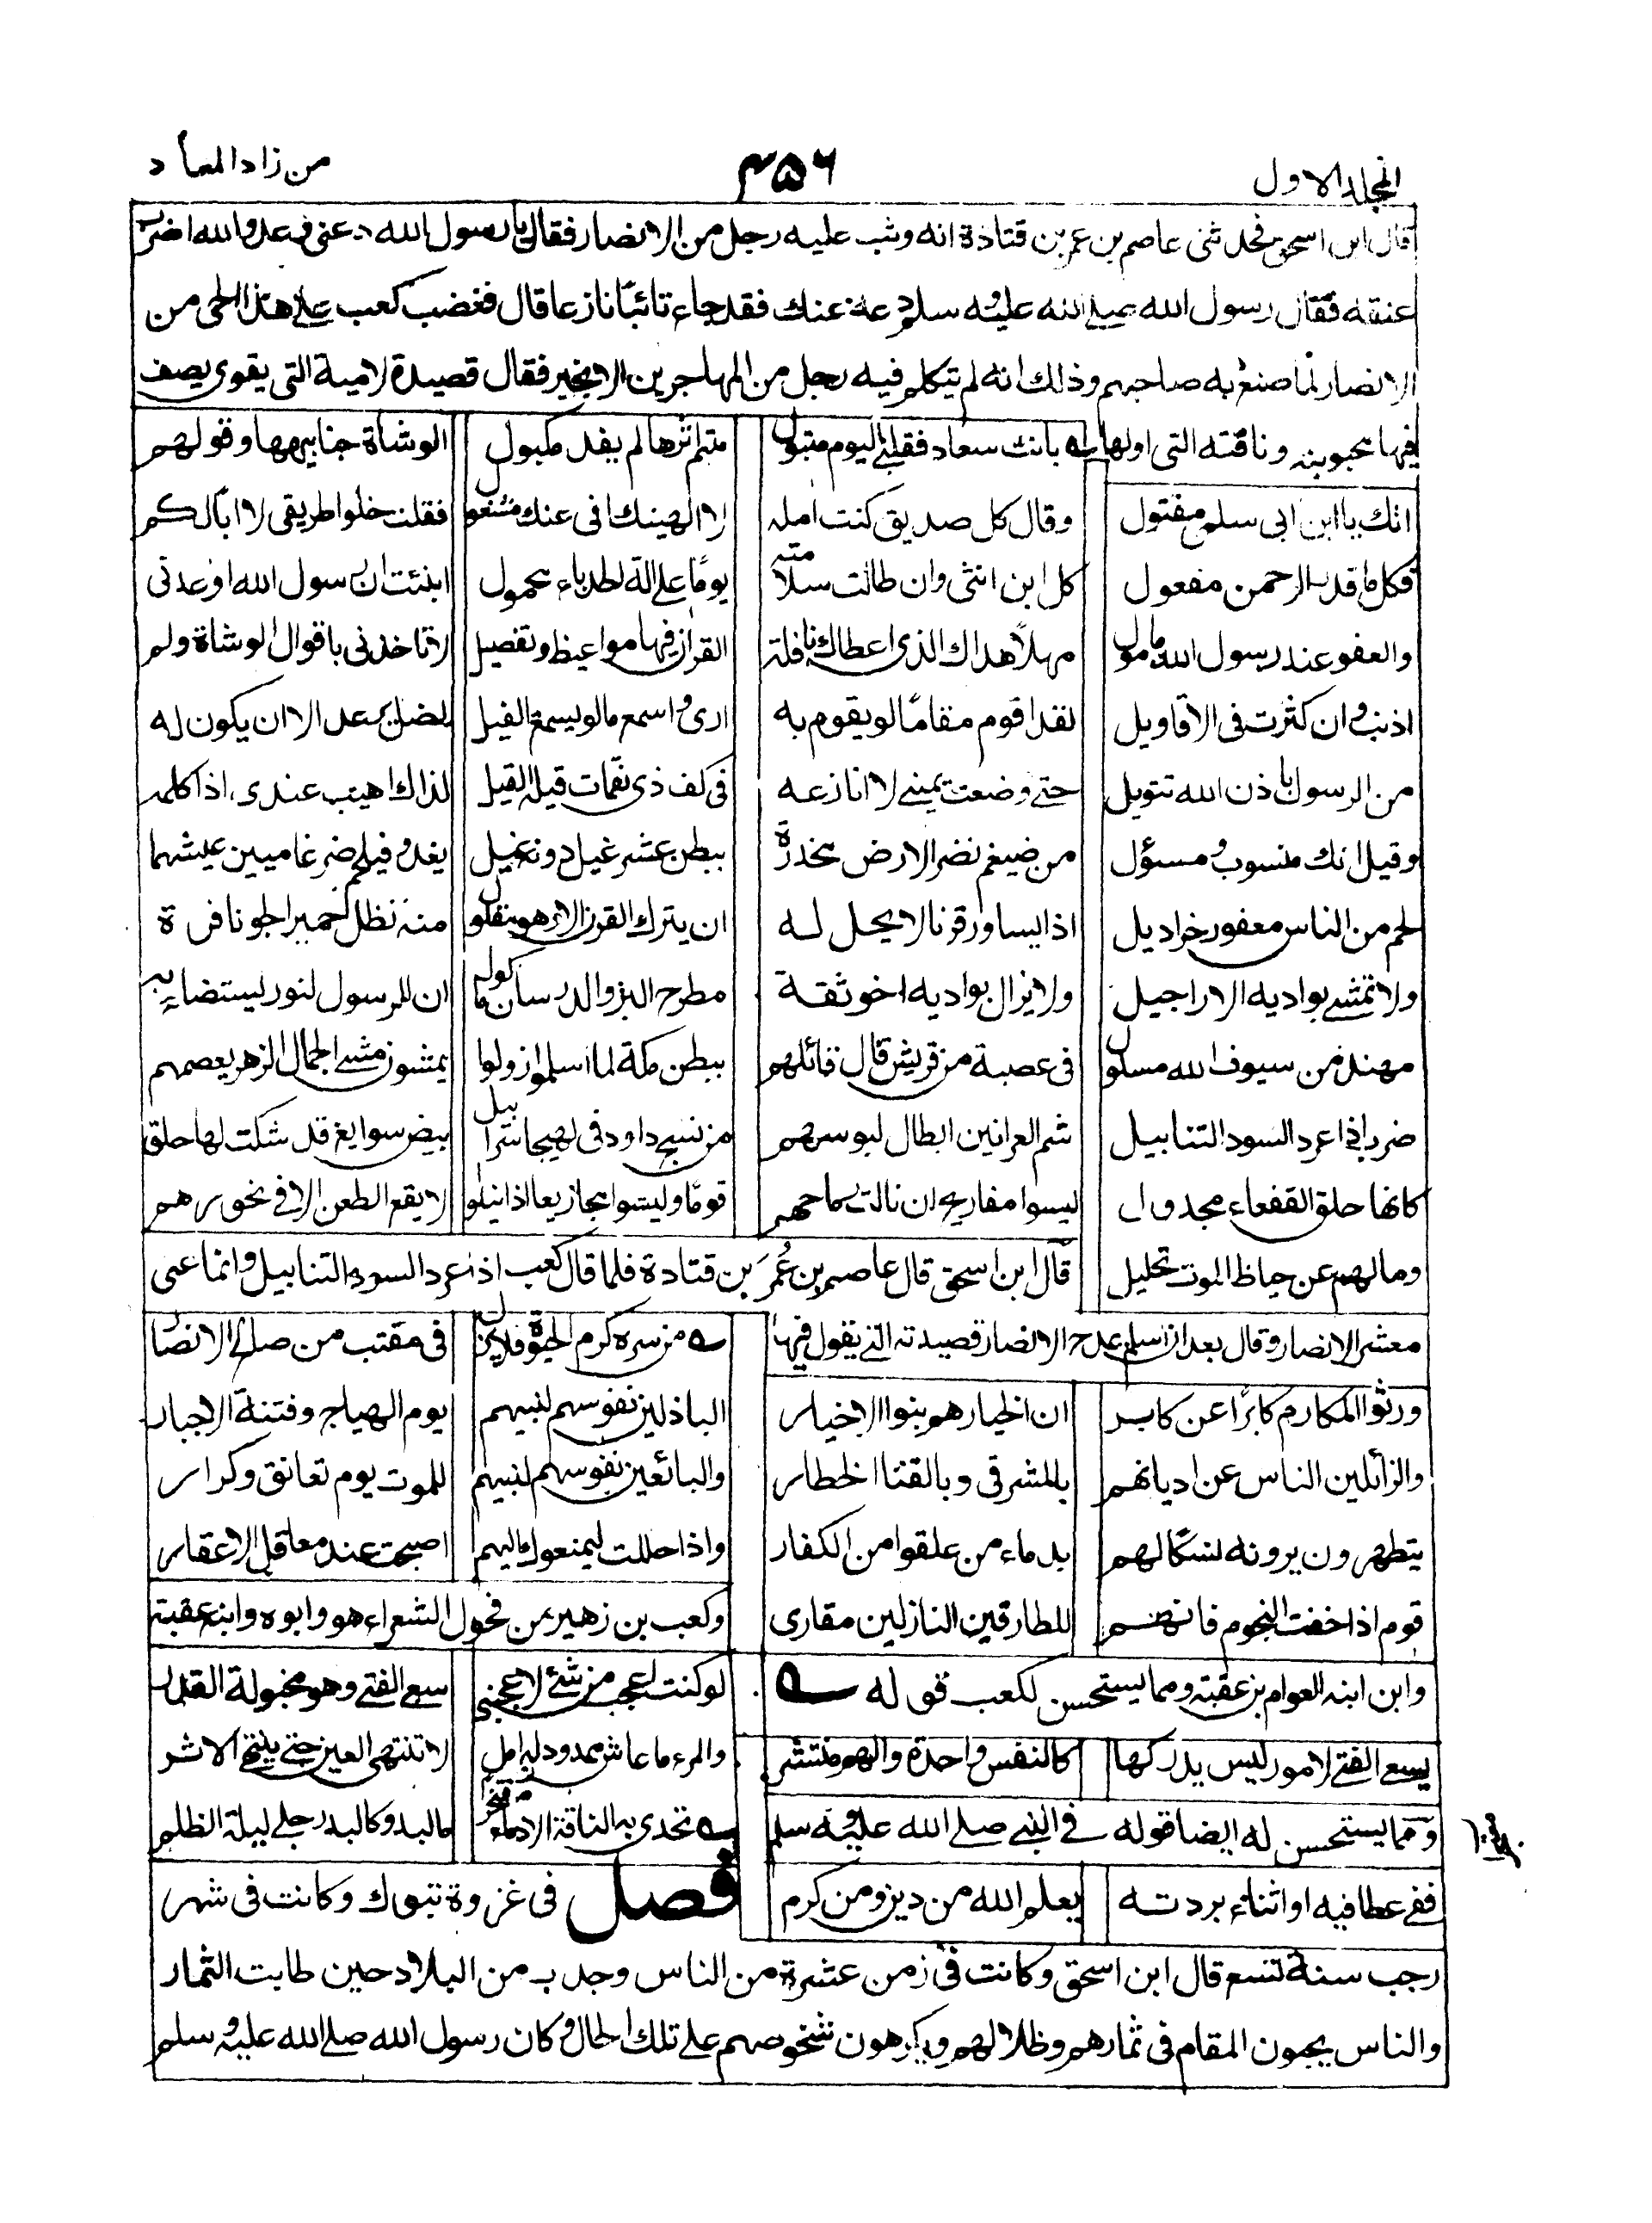 المجلد الاول ٤٥٦ من زاد المعاد
قال ابن اسحق فحدثنى عاصم بن عمر بن قتادة انه وثب عليه رجل من الانصار فقال يا رسول الله دعنى وعدو الله اضرب
عنقه فقال رسول الله صلى الله عليه وسلم دعه عنك فقد جاء تائبًا نازعا قال فغضب كعب على هذا الحى من
الانصار لما صنع به صاحبهم وذلك انه لم يتكلم فيه رجل من المهاجرين الا بخير فقال قصيدة لامية التى يصف
فيها محبوبته وناقته التى اولها بانت سعاد فقلبى اليوم متبول متيم اثرها لم يفد مكبول الوشاة جنابيها وقولهم
انك يا ابن ابى سلمى مقتول وقال كل صديق كنت امله لا الهينك انى عنك مشغول فقلت خلوا طريقى لا ابالكم
فكل ما قدر الرحمن مفعول كل ابن انثى وان طالت سلامته يومًا على الة حدباء محمول انبئت ان رسول الله اوعدنى
والعفو عند رسول الله مامول مهلًا هداك الذى اعطاك نافلة القران فيها مواعيظ وتفصيل لا تاخذنى باقوال الوشاة ولم
اذنب وان كثرت فى الاقاويل لقد اقوم مقامًا لو يقوم به ارى واسمع ما لو يسمع الفيل لظل يرعد الا ان يكون له
من الرسول باذن الله تنويل حتى وضعت يمينى لا انازعه فى كف ذى نقمات قيله القيل لذاك اهيب عندى اذا كلمه
وقيل انك منسوب ومسؤل من ضيغم بضراء الارض مخدرة ببطن عثر غيل دونه غيل يغدو فيلحم ضرغامين عيشهما
لحم من الناس معفور خراديل اذا يساور قرنا لا يحل له ان يترك القرن الا وهو مفلول منه تظل حمير الجو نافرة
ولا تمشى بواديه الاراجيل ولا يزال بواديه اخو ثقة مطرح البز والدرسان ماكول ان الرسول لنور يستضاء به
مهند من سيوف الله مسلول فى عصبة من قريش قال قائلهم ببطن مكة لما اسلموا زولوا يمشون مشى الجمال الزهر يعصمهم
ضرب اذا عرد السود التنابيل شم العرانين ابطال لبوسهم من نسج داود فى الهيجا سرابيل بيض سوابغ قد شكت لها حلق
كانها حلق القفعاء مجدول ليسوا مفاريح ان نالت رماحهم قومًا وليسوا مجازيعا اذا نيلوا لا يقع الطعن الا فى نحورهم
وما لهم عن حياض الموت تهليل قال ابن اسحق قال عاصم بن عُمَر بن قتادة فلما قال كعب اذا عرد السود التنابيل وانما عنى
معشر الانصار وقال بعد ان اسلم يمدح الانصار قصيدته التى يقول فيها من سره كرم الحيوة فلا يزل فى مقنب من صالح الانصار
ورثوا المكارم كابرًا عن كابر ان الخيار هم بنوا الاخيار الباذلين نفوسهم لنبيهم يوم الهياج وفتنة الاجبار
والزائلين الناس عن اديانهم بالمشرفى وبالقنا الخطار والبائعين نفوسهم لنبيهم للموت يوم تعانق وكرار
يتطهرون يرونه نسكًا لهم بدماء من علقوا من الكفار واذا حللت ليمنعوك اليهم اصبحت عند معاقل الاعقار
قوم اذا خفت النجوم فانهم للطارقين النازلين مقارى وكعب بن زهير من فحول الشعراء هو وابوه وابنه عقبة
وابن ابنه العوام بن عقبة ومما يستحسن لكعب قوله لو كنت اعجب من شئ لاعجبنى سعى الفتى وهو مخبولة القدر
يسعى الفتى لامور ليس يدركها كالنفس واحدة والهم منتشر والمرء ما عاش ممدود له امل لا تنتهى العين حتى ينتهى الاثر
ومما يستحسن له ايضا قوله فى النبى صلى الله عليه وسلم تحدى به الناقة الادماء معتجرا بالبرد كالبدر جلى ليلة الظلم
ففى عطافيه او اثناء بردته يعلم الله من دين ومن كرم فصل فى غزوة تبوك وكانت فى شهر
رجب سنة تسع قال ابن اسحق وكانت فى زمن عشرة من الناس وجدب من البلاد حين طابت الثمار
والناس يحبون المقام فى ثمارهم وظلالهم ويكرهون شخوصهم على تلك الحال وكان رسول الله صلى الله عليه وسلم